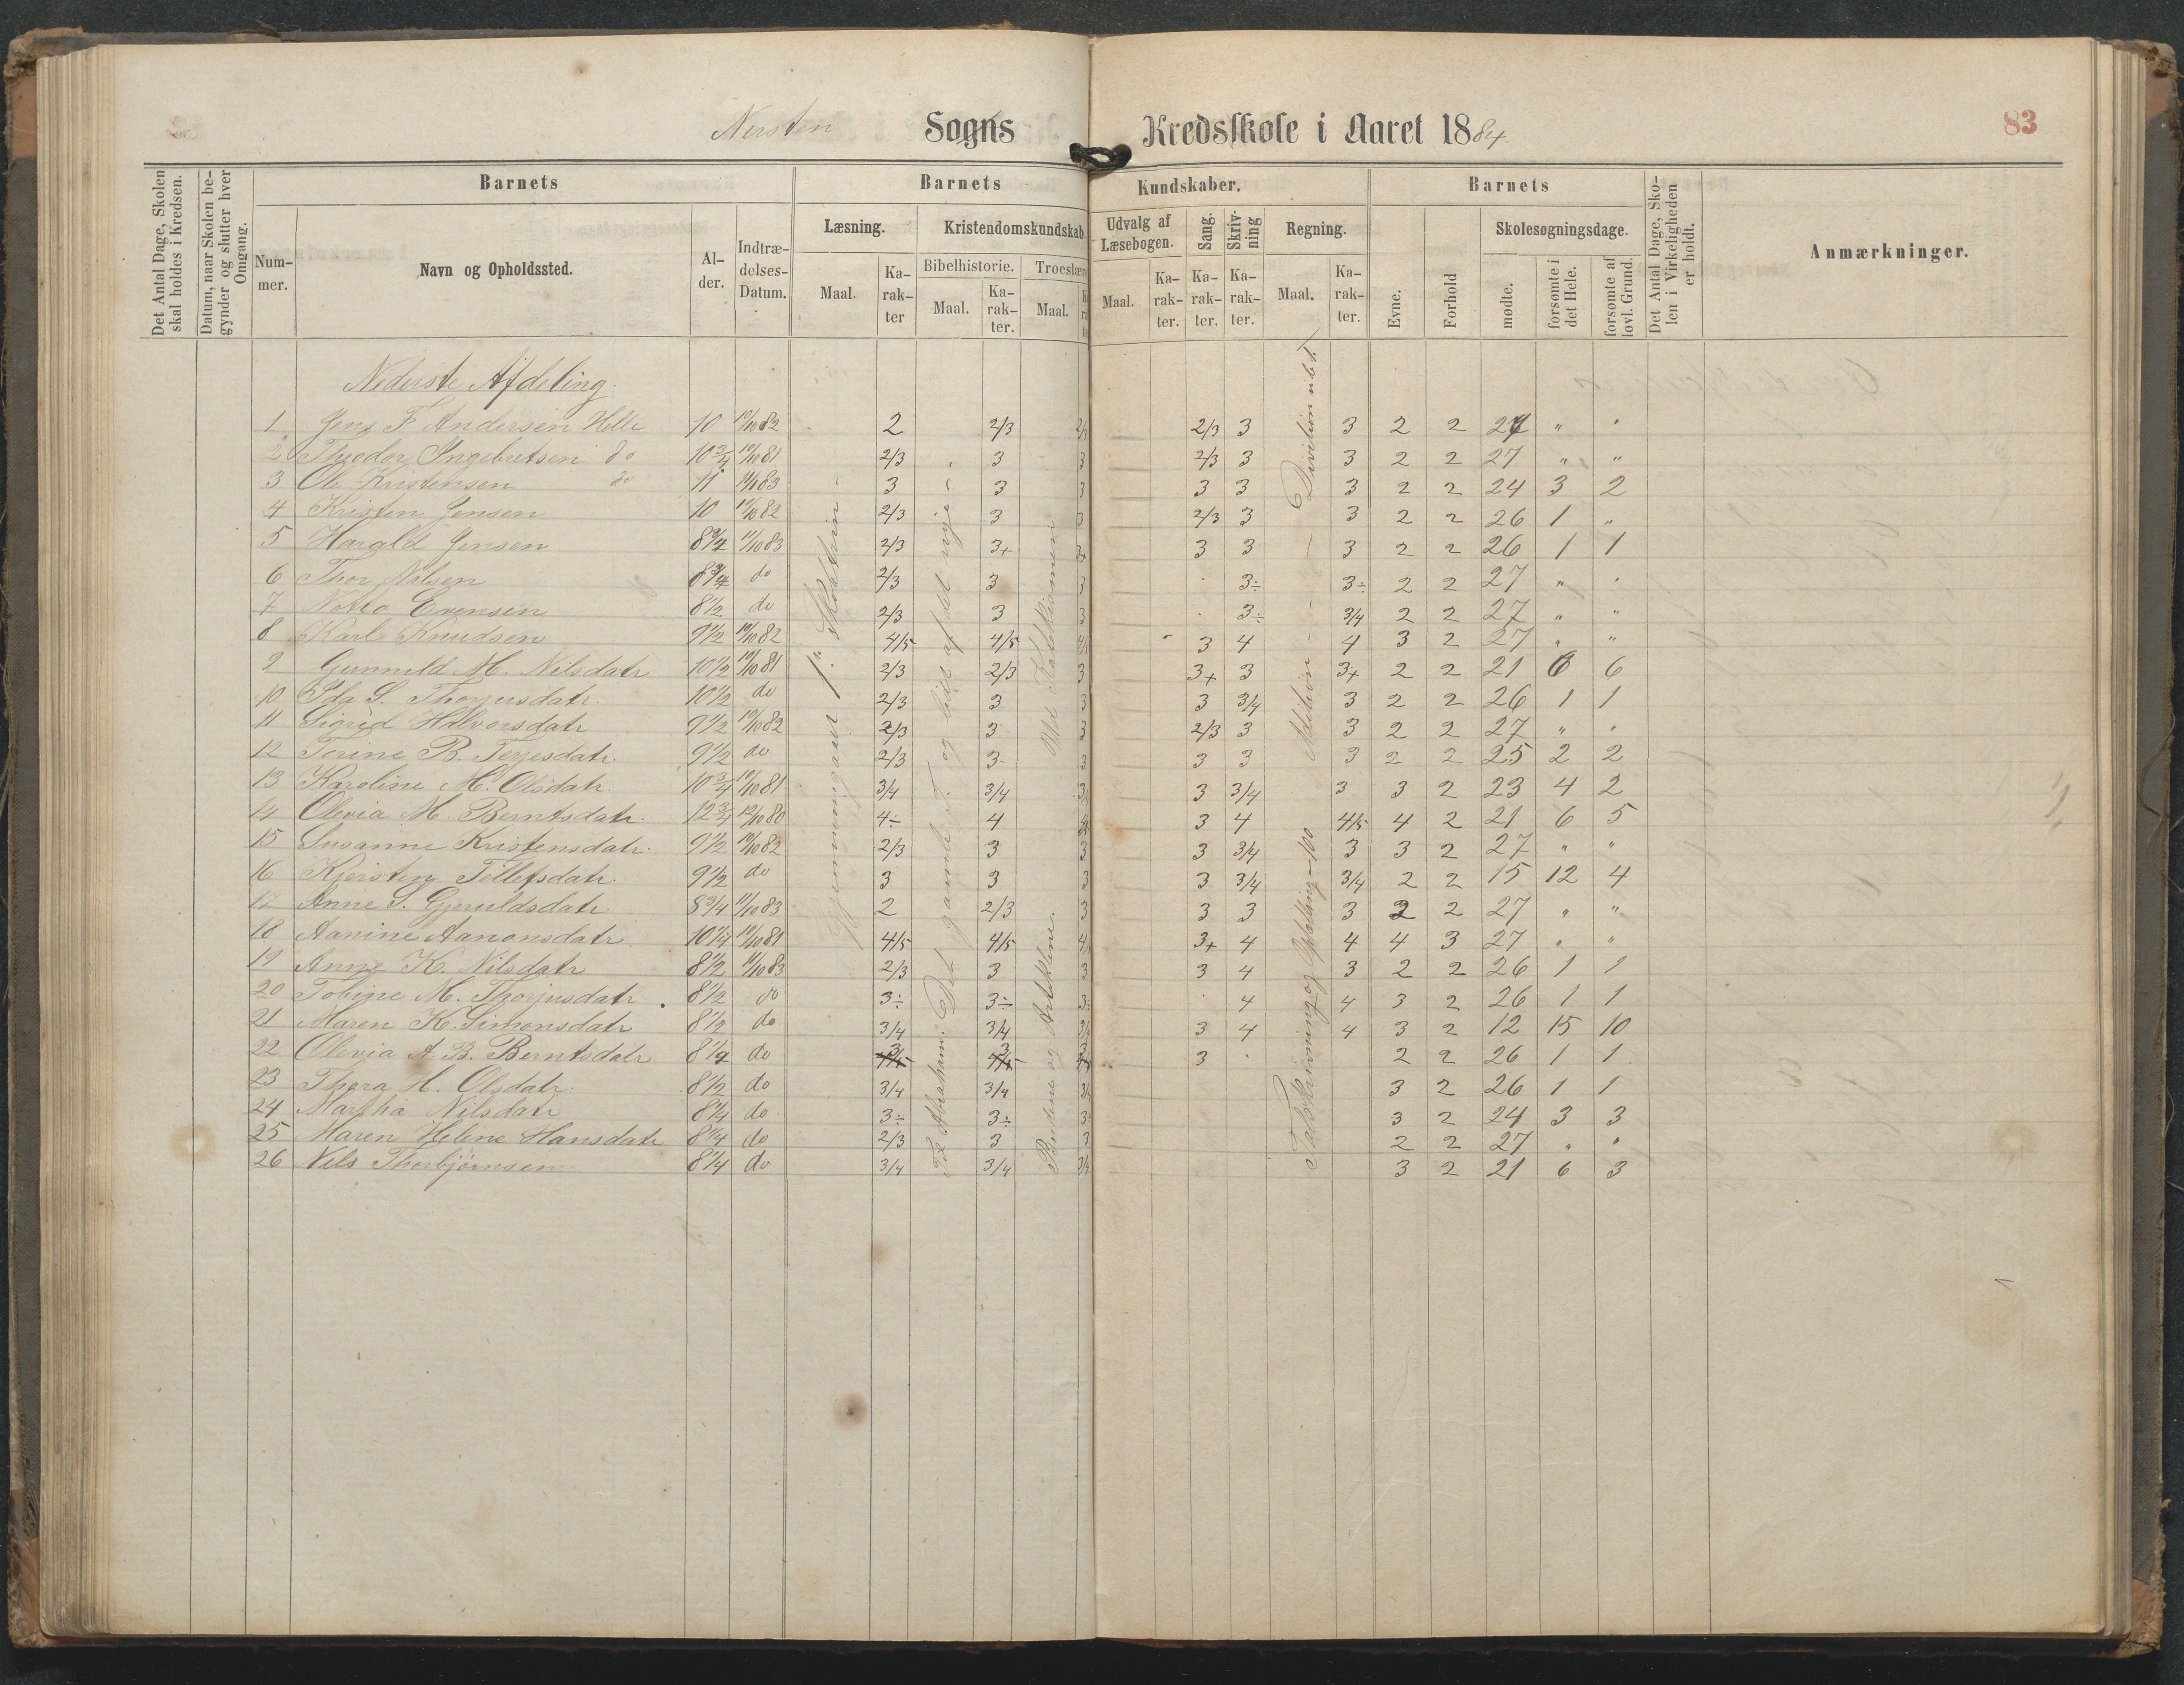 Nersten Sogns Kredsskole i Aaret 1884.
83
Det Antal Dage, Skolen skal holdes i Kredsen.
Datum, naar Skolen begynder og slutter hver Omgang.
Barnets
Barnets
Kundskaber.
Barnets
Det Antal Dage, Skolen i Virkeligheden er holdt.
Anmærkninger.
Nummer.
Navn og Opholdssted.
Alder.
Indtrædelses-Datum.
Læsning.
Kristendomskundskab.
Udvalg af Læsebogen.
Sang.
Skrivning
Regning.
Evne.
Forhold
Skolesøgningsdage.
Bibelhistorie.
Troeslære
Maal.
Karakter
Maal.
Karakter.
Maal.
Maal.
Karakter.
Karakter.
Karakter.
Maal.
Karakter.
mødte.
forsømte i det Hele.
forsømte af lovl. Grund.
Nederste Afdeling.
1 Jens F Andersen Helle 10 10/10 82 2 2/3 2/3 3 3 2 2 27 " "
2 Theodor Ingebretsen do 10 3/4 10/10 81 2/3 3 3 2/3 3 3 2 2 27 " "
3 Ole Kristensen do 11 83 3 3 3 3 3 3 2 2 24 3 2
4 Kristen Jensen 10 10/10 82 2/3 3 3 2/3 3 3 2 2 26 1 "
5 Harald Jensen 8 3/4 11/10 83 2/3 3+ 3+ 3 3 3 2 2 26 1 1
6 Thor Nilsen 8 3/4 do 2/3 3 3 3÷ 3÷ 2 2 27 " "
7 Evensen 8 1/2 do 2/3 3 3 3÷ 3/4 2 2 27 " "
8 Karl Knudsen 9 1/2 10/10 82 4/5 4/5 3 4 4 3 2 27 " "
9 Gunnild M. Nilsdatr 10 1/2 10/10 81 2/3 2/3 3 3+ 3 3+ 2 2 21 6 6
10 Ida S. Thorjusdatr. 10 1/2 do 2/3 3 3 3 3/4 3 2 2 26 1 1
11 Sigrid Halvorsdatr 9 1/2 10/10 82 2/3 3 3 2/3 3 3 2 2 27 " "
12 Torine B. Terjesdatr. 9 1/2 do 2/3 3 3 3 3 3 2 2 25 2 2
13 Karoline M. Olsdatr. 10 3/4 10/10 81 3/4 3/4 3 3/4 3 3 2 23 4 2
14 Olevia M. Berntsdatr. 12 3/4 12/10 80 4÷ 4 4 3 4 4/5 4 2 21 6 5
15 Susanne Kristensdatr. 9 1/2 10/10 82 2/3 3 3 3 3/4 3 3 2 27 " "
16 Kjersten Tellefsdatr. 9 1/2 do 3 3 3 3 3/4 3/4 2 2 15 12 4
17 Anne S. Gjeruldsdatr. 8 3/4 11/10 83 2 2/3 3 3 3 3 2 2 27 " "
18 Aanine Aanonsdatr. 10 1/4 10/10 81 4/5 4/5 3+ 4 4 4 3 27 " "
19 Anne K. Nilsdatr 8 1/2 11/10 83 2/3 3 3 3 4 3 2 2 26 1 1
20 Tobine M. Thorjusdatr. 8 1/2 do 3÷ 3÷ 3÷ 4 4 3 2 26 1 1
21 Maren K. Simonsdatr 8 1/2 do 3/4 3/4 3/4 3 4 4 3 2 12 15 10
22 Olevia A. B. Berntsdatr 8 1/2 do 3 3 3 3 2 2 26 1 1
23 Thora H. Olsdatr. 8 1/2 do 3/4 3/4 3/4 3 2 26 1 1
24 Martha Nilsdatr 8 1/4 do 3÷ 3÷ 3÷ 3 2 24 3 3
25 Maren Helene Hansdatr 8 1/4 do 2/3 3 3 2 2 27 " "
26 Nils Thorbjørnsen 8 1/4 do 3/4 3/4 3/4 3 2 21 6 3
Gjennemgaaet 1ste Skoletrin -
Til Abraham. Det gamle T. og lidt af det nye -
Budene og Artiklene. Ud Katekismen
Talskrivning og Opstilling - 100 Addition - - - Division